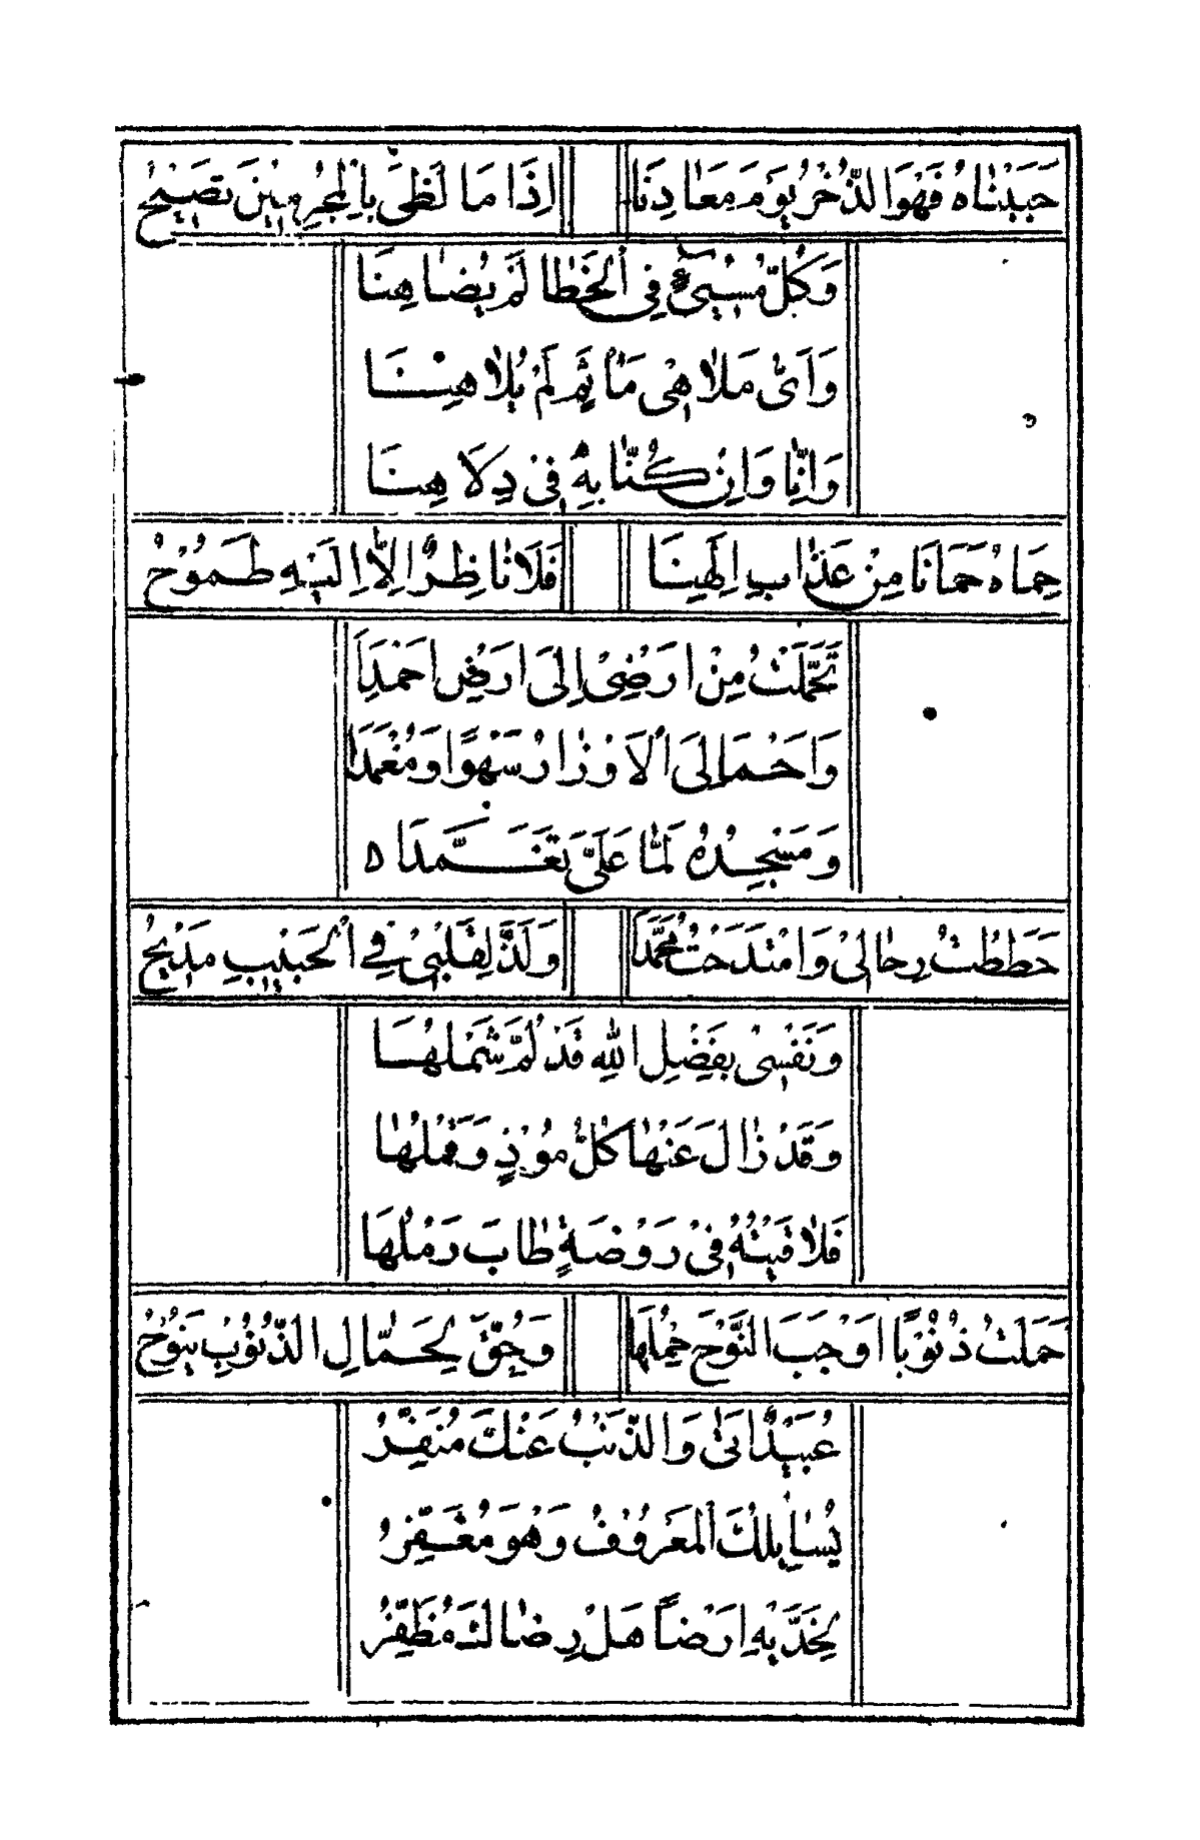 حَبَبْنَاهُ فَهْوَ الذُّخْرُ يَوْمَ مَعَادِنَا اِذَا مَا لَظٰى بِالْمُجْرِمِيْنَ تَصِيْحُ
وَكُلُّ مُسِيْئٍ فِى الْخَطَا لَمْ يُضَاهِنَا
وَاَىُّ مَلَاهِىْ مَاْثَمٍ لَمْ يُلَاهِنَا
وَاِنَّا وَاِنْ كُنَّا بِهِ فِىْ دِلَاهِنَا
حِمَاهُ حَمَانَا مِنْ عَذَابِ اِلٰهِنَا فَلَا نَاظِرٌ اِلَّا اِلَيْهِ طَمُوْحُ
تَحَمَّلْتُ مِنْ اَرْضِىْ اِلَى اَرْضِ اَحْمَدَا
وَاَحْمَالِىَ الْاَوْزَارُ سَهْوًا وَمُغْمَدَا
وَمَسْجِدُهُ لَمَّا عَلَىَّ تَغَمَّدَا ه
حَطَطْتُ رِحَالِىْ وَامْتَدَحْتُ مُحَمَّدَا وَلَذَّ لِقَلْبِىْ فِى الْحَبِيْبِ مَدِيْحُ
وَنَفْسِىْ بِفَضْلِ اللهِ قَدْ لُمَّ شَمْلُهَا
وَقَدْ زَالَ عَنْهَا كُلُّ مُوْذٍ وَقَمْلُهَا
فَلَاقَيْتُهُ فِىْ رَوْضَةٍ طَابَ رَمْلُهَا
حَمَلْتُ ذُنُوْبًا اَوْجَبَ النَّوْحَ حِمْلُهَا وَحُقَّ لِحَمَّالِ الذُّنُوْبِ يَنُوْحُ
عُبَيْدٌ اَتٰى وَالذَّنْبُ عَنْكَ مُنَفِّرُ
يُسَايِلُكَ الْمَعْرُوْفُ وَهْوَ مُعَفِّرُ
لِخَدٍّ بِهِ اَرْضًا هَلْ رِضَاكَ مُظَفِّرُ